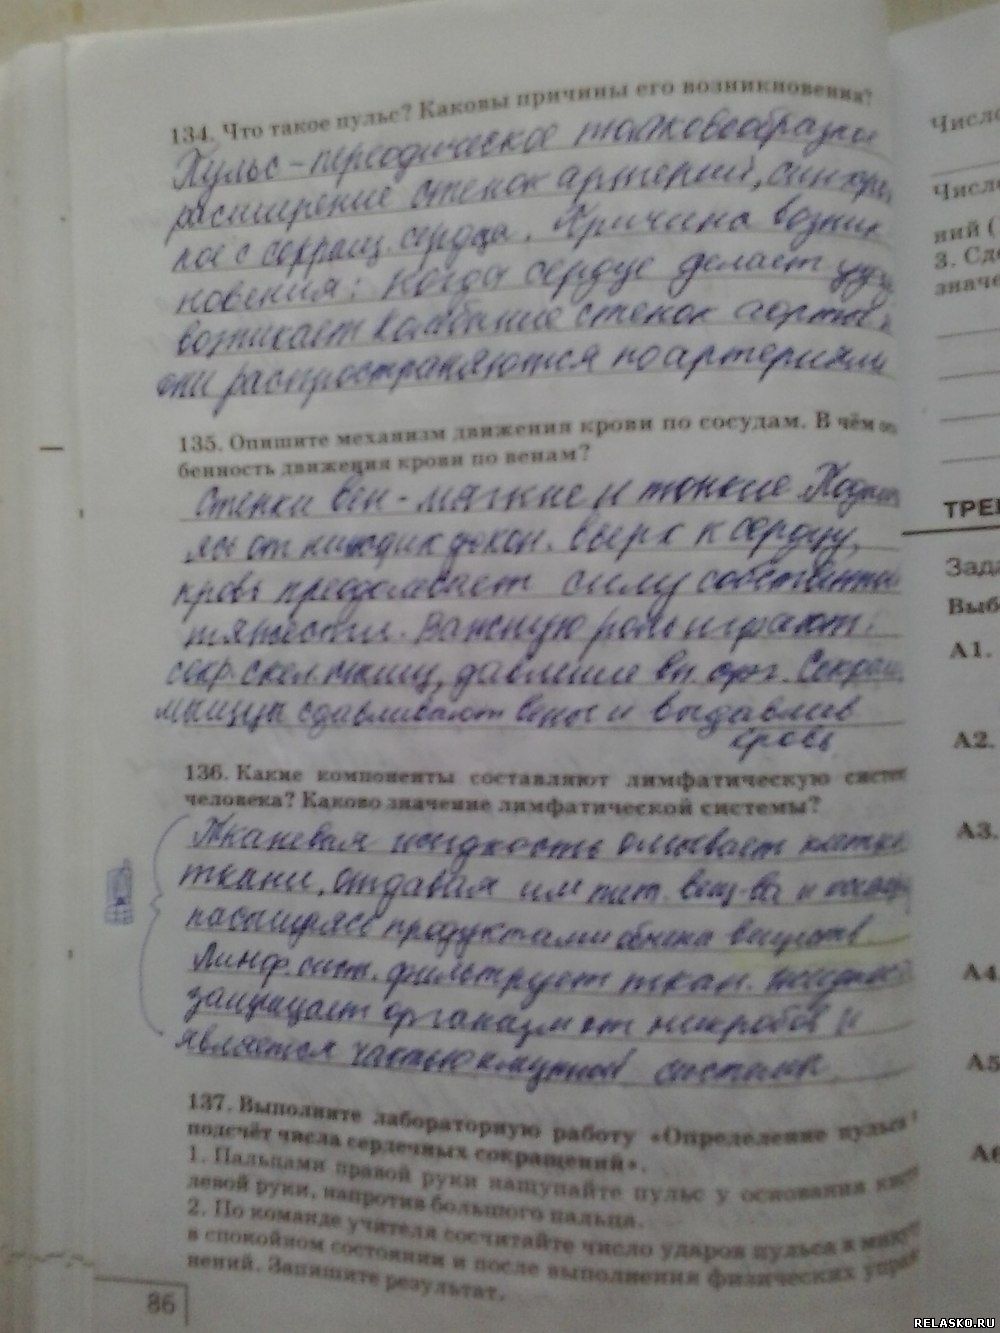 134. Что такое пульс? Каковы причины его возникновения?
Пульс – переодическое толчкообразное
расширение стенок артерий, синхрон
ное с сокращ. сердца. Причина возник
новения: Когда сердце делает удар
возникает колебание стенок аорты и
они распространяются по артериям
135. Опишите механизм движения крови по сосудам. В чём осо
бенность движения крови по венам?
Стенки вен – мягкие и тонкие Подним
ясь от нижних конеч. вверх к сердцу,
кровь преодолевает силу собственной
тяжести. Важную роль играют:
сокр. скел. мышц, давление вн. орг. Сокращ
мышцы сдавливают вены и выдавлив
кровь
136. Какие компоненты составляют лимфатическую систему
человека? Каково значение лимфатической системы?
Тканевая жидкость омывает клетки
ткани, отдавая им пит. вещ-ва и
насыщаясь продуктами обмена веществ
Лимф. сист. фильтрует ткан. жидкость
защищает организм от микробов и
является частью имунной системы
137. Выполните лабораторную работу «Определение пульса и
подсчёт числа сердечных сокращений».
1. Пальцами правой руки нащупайте пульс у основания кисти
левой руки, напротив большого пальца.
2. По команде учителя сосчитайте число ударов пульса в минуту
в спокойном состоянии и после выполнения физических упраж
нений. Запишите результат.
86
Число
Число
ний (
3. Сде
значе
ТРЕН
Зада
Выб
А1.
А2.
А3.
А4
А5
А6
RELASKO.RU